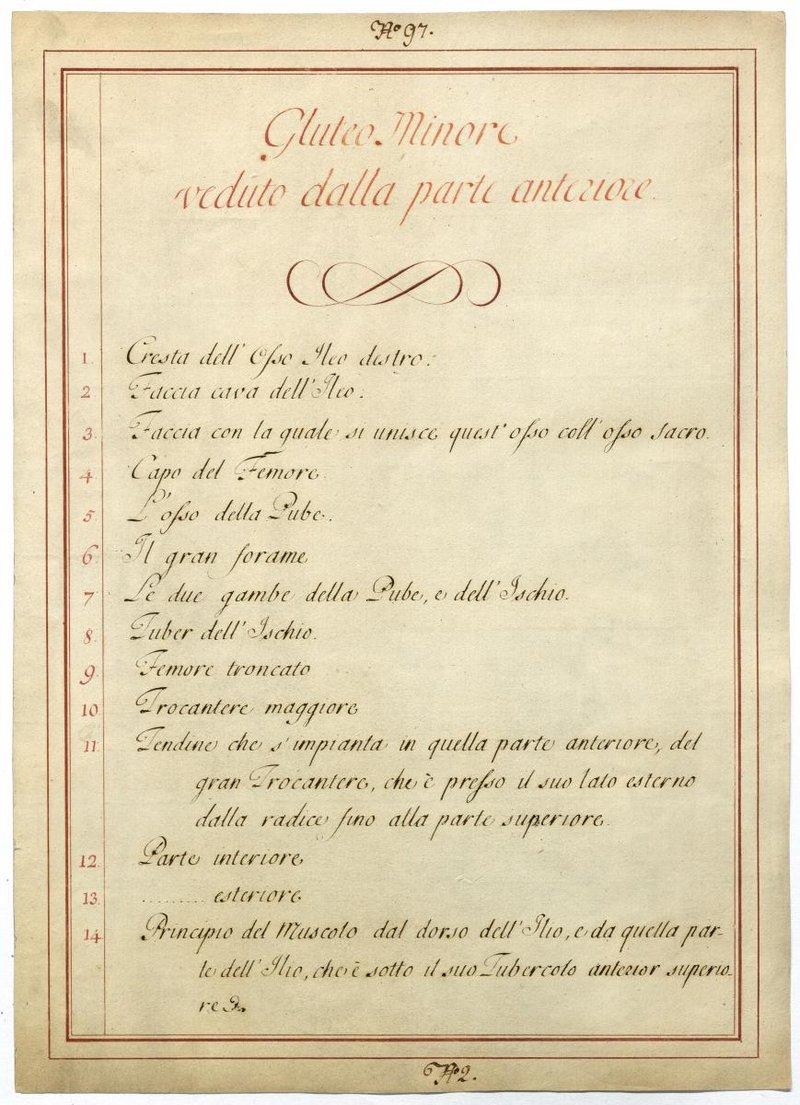 No. 97.
Gluteo Minore
veduto dalla parte anteriore.
1. Cresta dell' Osso Ileo destro.
2 Faccia cava dell' Ileo.
3. Faccia con la quale si unisce quest' osso coll' osso sacro.
4 Capo del Femore.
5. L'osso della Pube.
6. Il gran forame
7 Le due gambe della Pube, e dell' Ischio.
8. Tuber dell' Ischio.
9. Femore troncato
10 Trocantere maggiore
11 Tendine che s'impianta in quella parte anteriore, del
gran Trocantere, che è presso il suo lato esterno
dalla radice fino alla parte superiore.
12. Parte interiore
13. ......... esteriore
14 Principio del Muscolo dal dorso dell' Ilio, e da quella par-
te dell' Ilio, che è sotto il suo Tubercolo anterior superio-
re
No. 2.